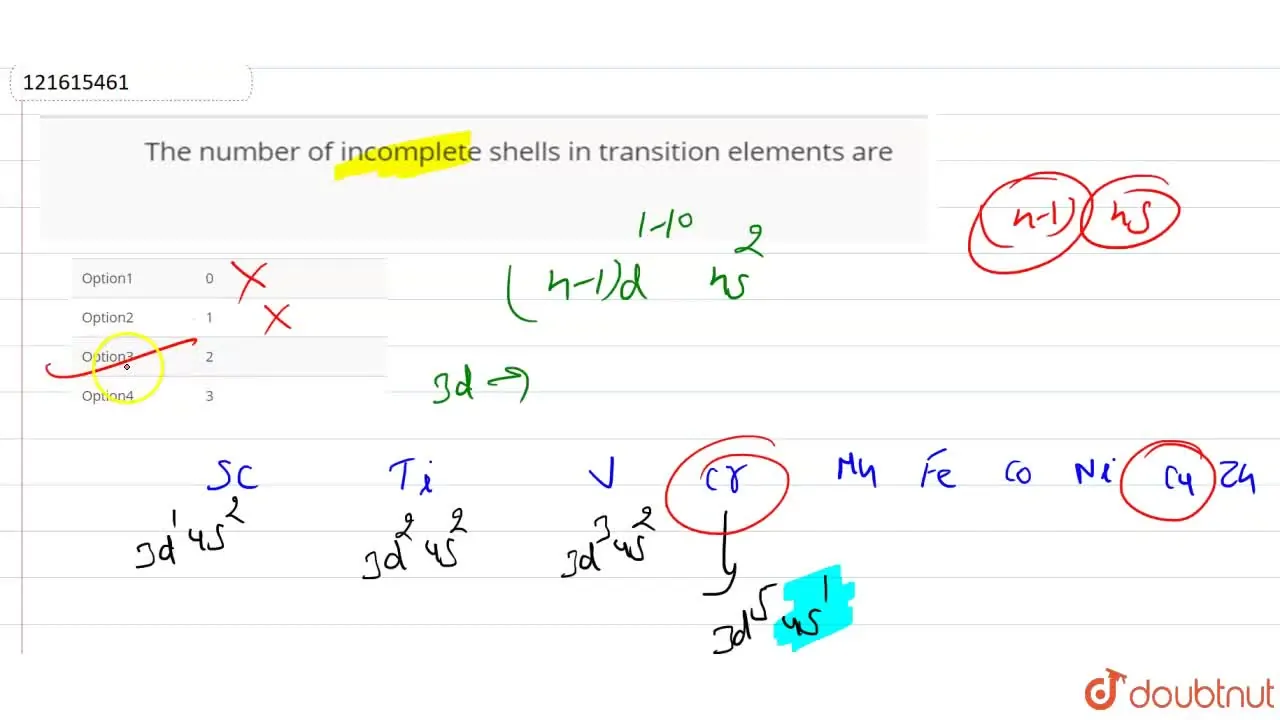 121615461
The number of incomplete shells in transition elements are
(n-1) ns
1-10 2
(n-1)d ns
Option1 0 ×
Option2 1 ×
Option3 2
Option4 3
3d →
Sc Ti V Cr Mn Fe Co Ni Cu Zn
3d¹ 4s² 3d² 4s² 3d³ 4s²
3d⁵ 4s¹
doubtnut